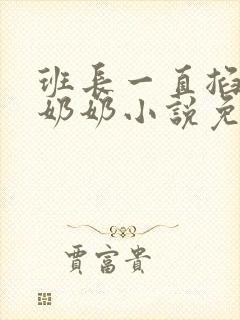 班長一直掐
奶奶小說免
賈富貴